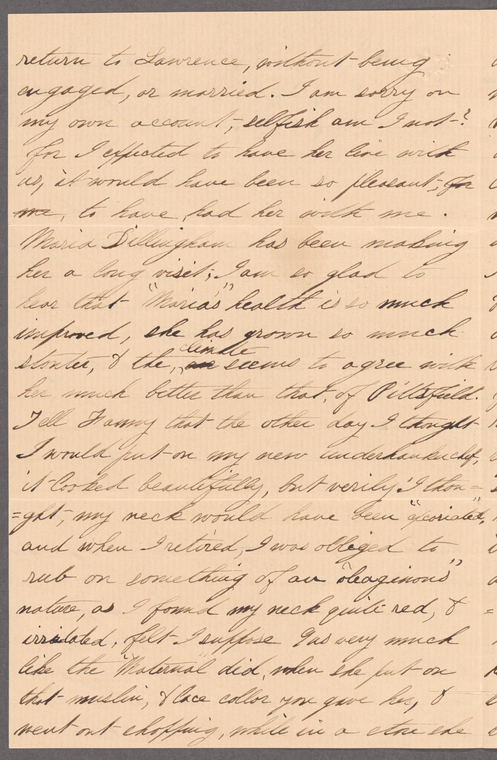 return to Lawrence, without being
engaged, or married. I am sorry on
my own account, selfish am I not-?
for I expected to have her live with
us, it would have been so pleasant, for
me, to have had her with me.
Maria Dillingham has been making
her a long visit; I am so glad to
hear that "Maria's" health is so much
improved, she has grown so much
stouter, & the climate seems to agree with
her much better than that, of Pittsfield.
Tell Fanny that the other day I thought
I would put on my new underhandkerchief,
it looked beautifully, but verily I thou=
=ght, my neck would have been "excoriated",
and when I retired, I was obliged to
rub on something of an "oleaginous"
nature, as I found my neck quite red, &
irritated, felt I suppose as very much
like the "Maternal did, when she put on
that muslin, & lace collar you gave her, &
went out shopping, while in a store she